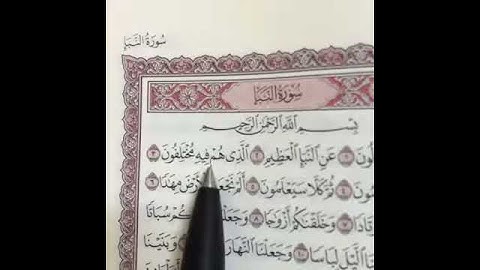 سُورَةُ النَّبَإِ
سُورَةُ النَّبَإِ
بِسْمِ اللَّهِ الرَّحْمَٰنِ الرَّحِيمِ
عَنِ النَّبَإِ الْعَظِيمِ ٢ الَّذِي هُمْ فِيهِ مُخْتَلِفُونَ ٣
ثُمَّ كَلَّا سَيَعْلَمُونَ ٥ أَلَمْ نَجْعَلِ مِهَادًا ٦
وَخَلَقْنَاكُمْ أَزْوَاجًا ٨ وَجَعَلْنَا سُبَاتًا
اللَّيْلَ لِبَاسًا ١٠ وَجَعَلْنَا النَّهَارَ وَبَنَيْنَا